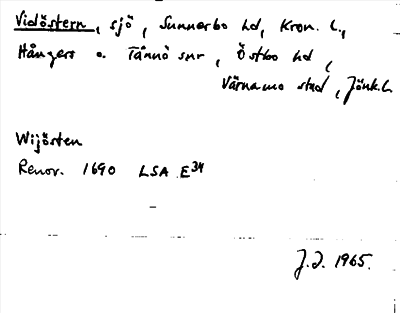 Vidöstern, sjö, Sunnerbo hd, Kron. l.,
Hångers o. Tånnö snr, Östbo hd,
Värnamo stad, Jönk.l.
Wijösten
Renov. 1690 LSA E34
J.J. 1965.